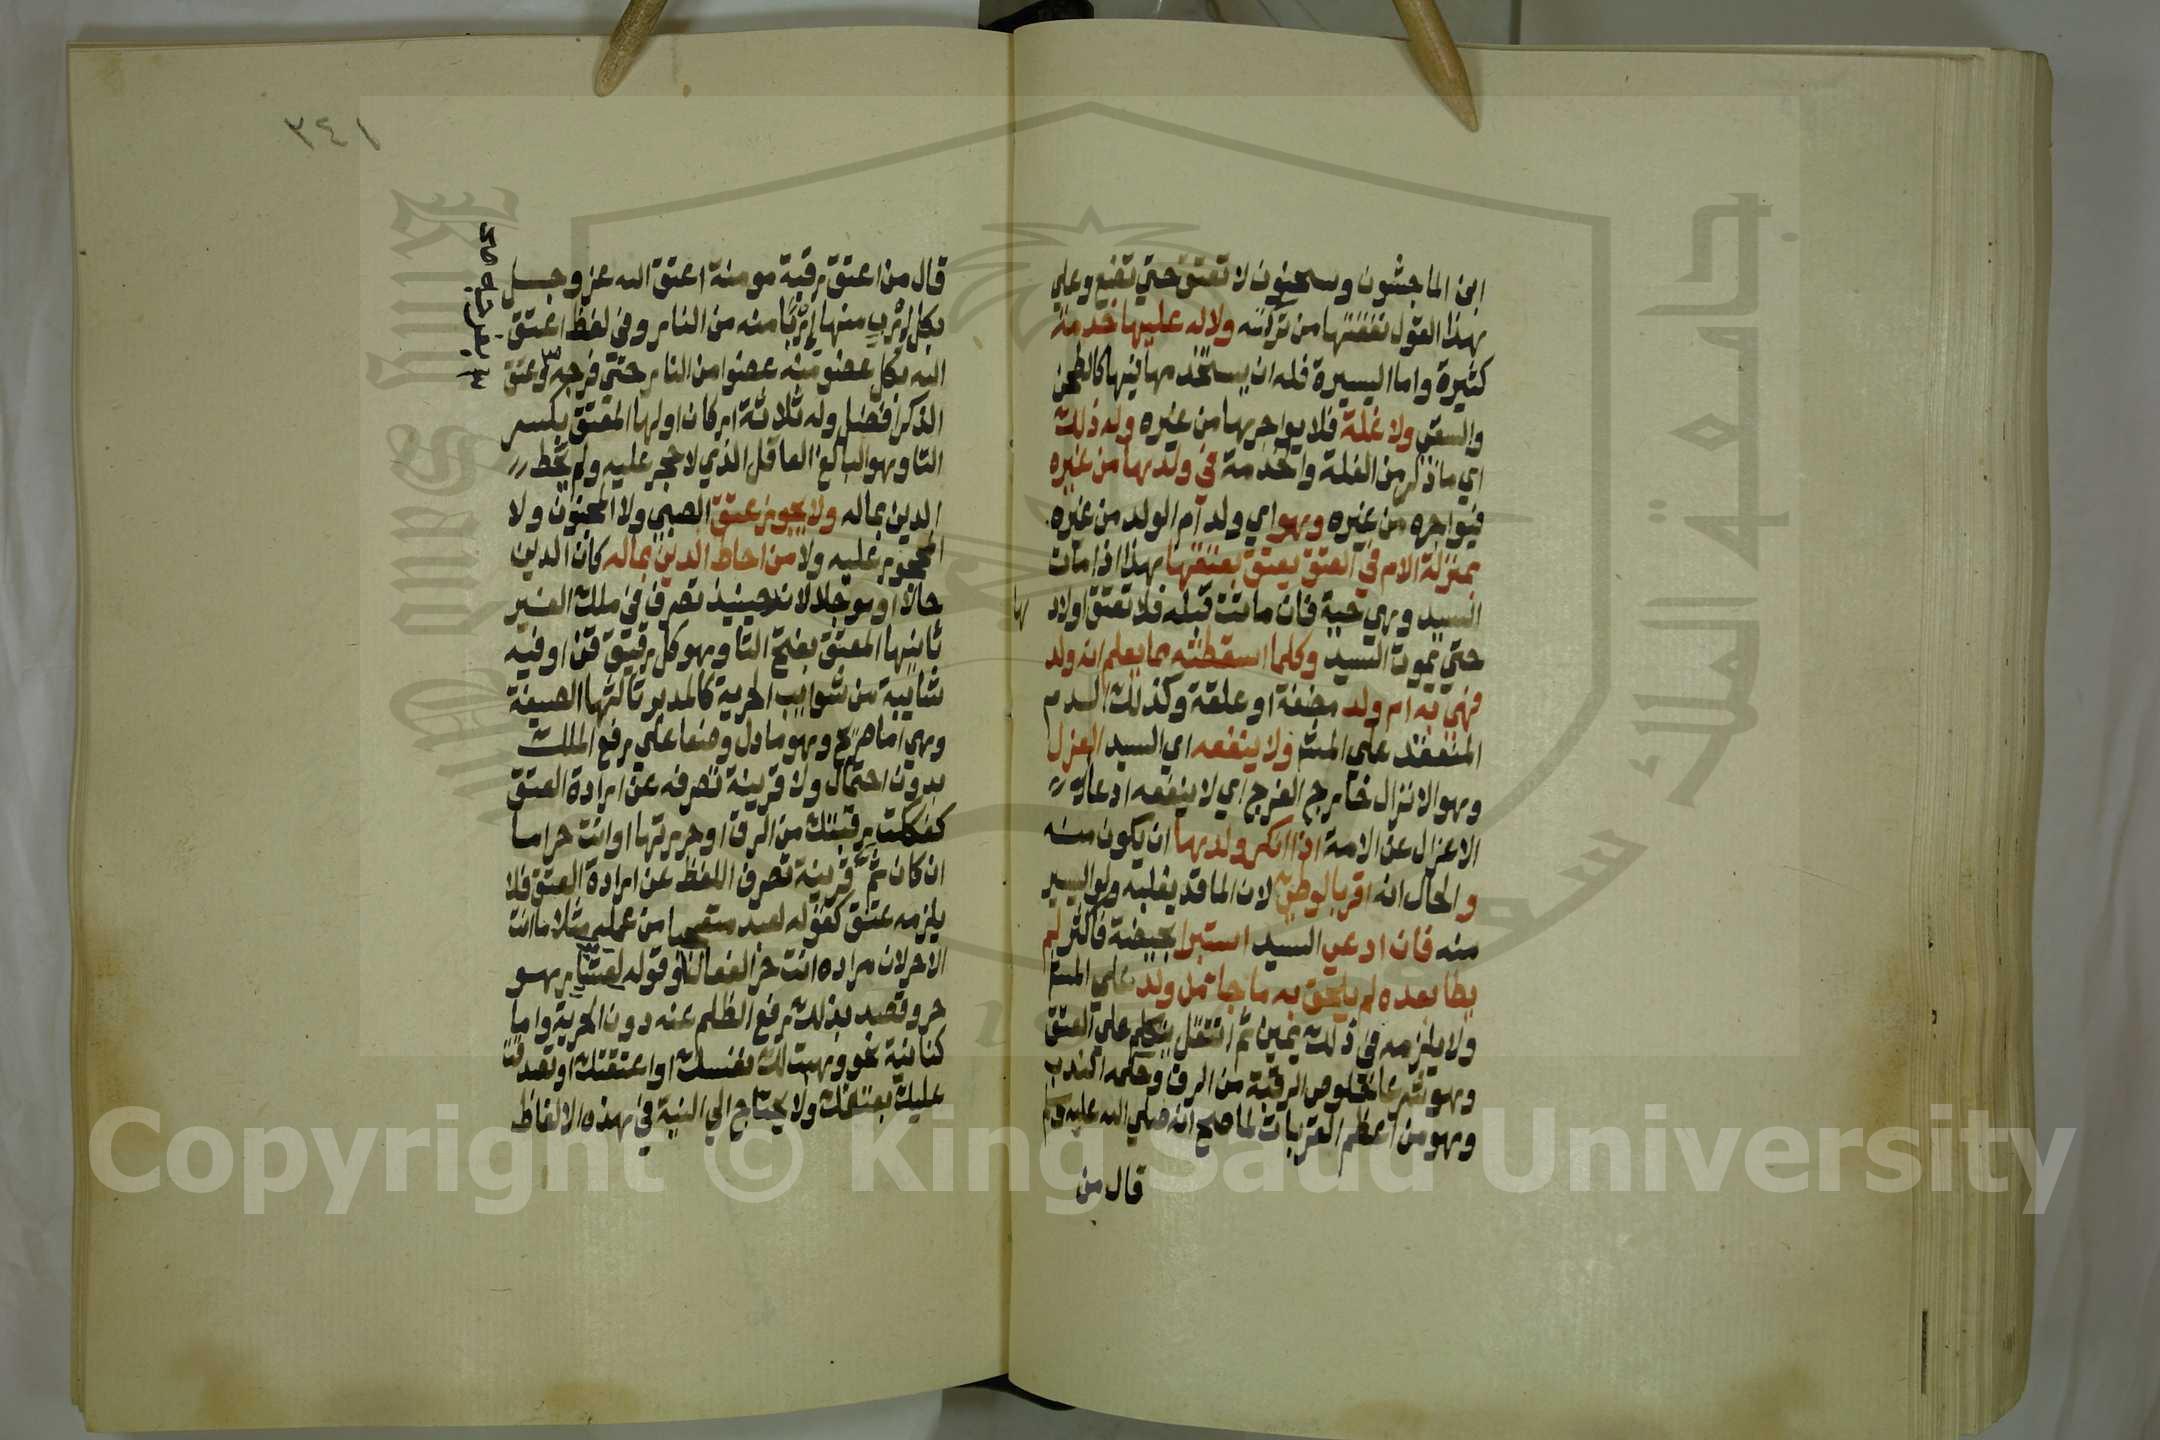 ابن الماجشون وسحنون لا تعتق حتي تضع وعلي
هذا القول نفقتها من تركته وله عليها خدمة
كثيرة واما اليسيرة فله ان يستخدمها فيها كالطحن
والسقي ولا غلة فلا يواجرها من غيره وله ذلك
اي ما ذكر من الغلة والخدمة في ولدها من غيره
فيواجره من غيره وهو اي ولد ام الولد من غيره
بمنزلة الام في العتق يعتق بعتقها هذا اذا مات
السيد وهي حية فان ماتت قبله فلا تعتق اولاد
ها
حتي يموت السيد وكلما اسقطته مما يعلم انه ولد
فهي به ام ولد مضغة او علقة وكذلك الدم
المنعقد علي المش ولا ينفعه اي السيد العزل
وهو الانزال خارج الفرج اي لا ينفعه ادعاؤه
الاعزال عن الامة اذا انكر ولدها ان يكون منه
والحال انه اقر بالوطئ لان الما قد يغلبه ولو اليسير
منه فان ادعي السيد استبرا بحيضة فاكثر لم
يطا بعده لم يلحق به ما جا من ولد علي المش
ولا يلزمه في ذلك يمين ثم انتقل يتكلم علي العتق
وهو شرعا خلوص الرقبة من الرق وحكمه الندب
وهو من اعظم القربات لما صح انه صلي الله عليه وسلم
قال من
٣٤١
قال من اعتق رقبة مومنة اعتق الله عز وجل
بكل إرْبٍ منها إرْبًا منه من النار وفي لفظ اعتق
الله بكل عضو منه عضوا من النار حتي فرجه وعتق
الذكر افضل وله ثلاثة اركان اولها المعتق بكسر
التا وهو البالغ العاقل الذي لا حجر عليه ولم يحط
الدين بماله ولا يجوز عتق الصبي ولا المجنون ولا
المحجور عليه ولا من احاط الدين بماله كان الدين
حالا او موجلا لانه حينيذ تصرف في ملك الغير
ثانيها المعتق بفتح التا وهو كل رقيق قن او فيه
شايبة من شوايب الحرية كالمدبر ثالثها الصيغة
وهي اما صريح وهو ما دل وضعا علي رفع الملك
بدون احتمال ولا قرينة تصرفه عن ارادة العتق
كفككت رقبتك من الرق او حررتها او انت حر اما
ان كان ثم قرينة تصرف اللفظ عن ارادة العتق فلا
يلزمه عتق كقوله لعبد متعجبا من عمله مثلا ما انت
الا حر لان مراده انت حر الفعال او قوله هو
حر وقصد بذلك رفع الظلم عنه دون الحرية واما
كناية نحو وهبت لك نفسك او اعتقتك او تصدقت
عليك بعتقك ولا يحتاج الي النية في هذه الالفاظ